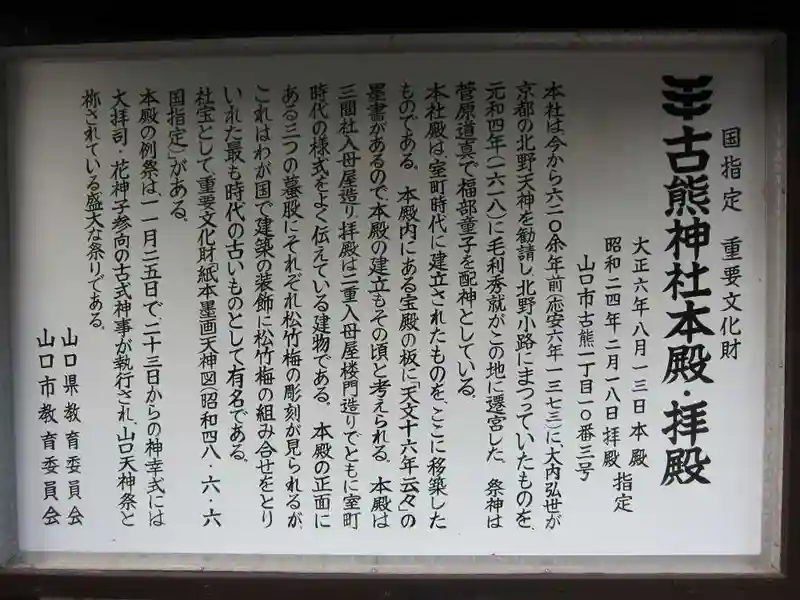 国指定 重要文化財
古熊神社本殿・拝殿
大正六年八月一三日本殿
昭和二四年二月一八日拝殿 指定
山口市古熊一丁目一〇番三号
本社は、今から六二〇余年前(応安六年一三七三)に、大内弘世が
京都の北野天神を勧請し、北野小路にまつっていたものを、
元和四年(一六一八)に毛利秀就がこの地に遷宮した。祭神は
菅原道真で福部童子を配神としている。
本社殿は、室町時代に建立されたものを、ここに移築した
ものである。本殿内にある宝殿の板に「天文十六年云々」の
墨書があるので、本殿の建立もその頃と考えられる。本殿は
三間社入母屋造り、拝殿は二重入母屋楼門造りでともに室町
時代の様式をよく伝えている建物である。本殿の正面に
ある三つの蟇股にそれぞれ松竹梅の彫刻が見られるが、
これはわが国で建築の装飾に松竹梅の組み合せをとり
いれた最も時代の古いものとして有名である。
社宝として重要文化財紙本墨画天神図(昭和四八・六・六
国指定)がある。
本殿の例祭は、一一月二五日で、二十三日からの神幸式には
大拝司・花神子参向の古式神事が執行され、山口天神祭と
称されている盛大な祭りである。
山口県教育委員会
山口市教育委員会